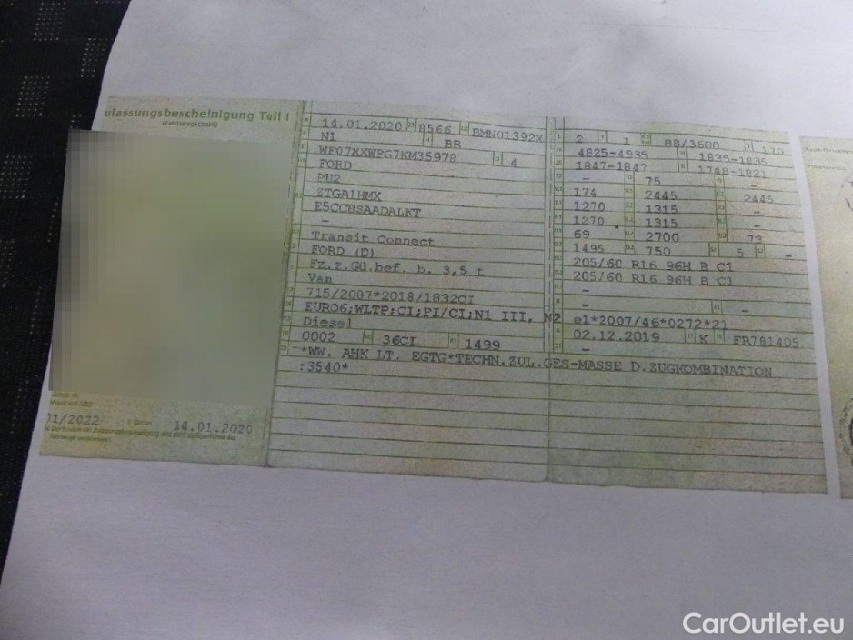 ulassungsbescheinigung Teil I
14.01.2020 8566 BMN01392X
N1 BB
WF07XXWPG7KM35978 4
FORD
PU2
ZTGA1HMX
E5CCBSAADALKT
-
Transit Connect
FORD (D)
Fz.z.Gü.bef. b. 3,5 t
Van
715/2007*2018/1832CI
EURO6;WLTP;CI;PI/CI;N1 III, N2
Diesel
0002 36CI 1499
*WW. AHK LT. EGTG*TECHN.ZUL.GES-MASSE D.ZUGKOMBINATION
:3540*
2 1 88/3600 175
4825-4935 1835-1835
1847-1847 1748-1821
- 75 -
174 2445 2445
1270 1315 -
1270 1315 -
69 2700 73
1495 750 5 -
205/60 R16 96H B C1
205/60 R16 96H B C1
-
- -
e1*2007/46*0272*21
02.12.2019 K FR781405
-
01/2022 14.01.2020
CarOutlet.eu